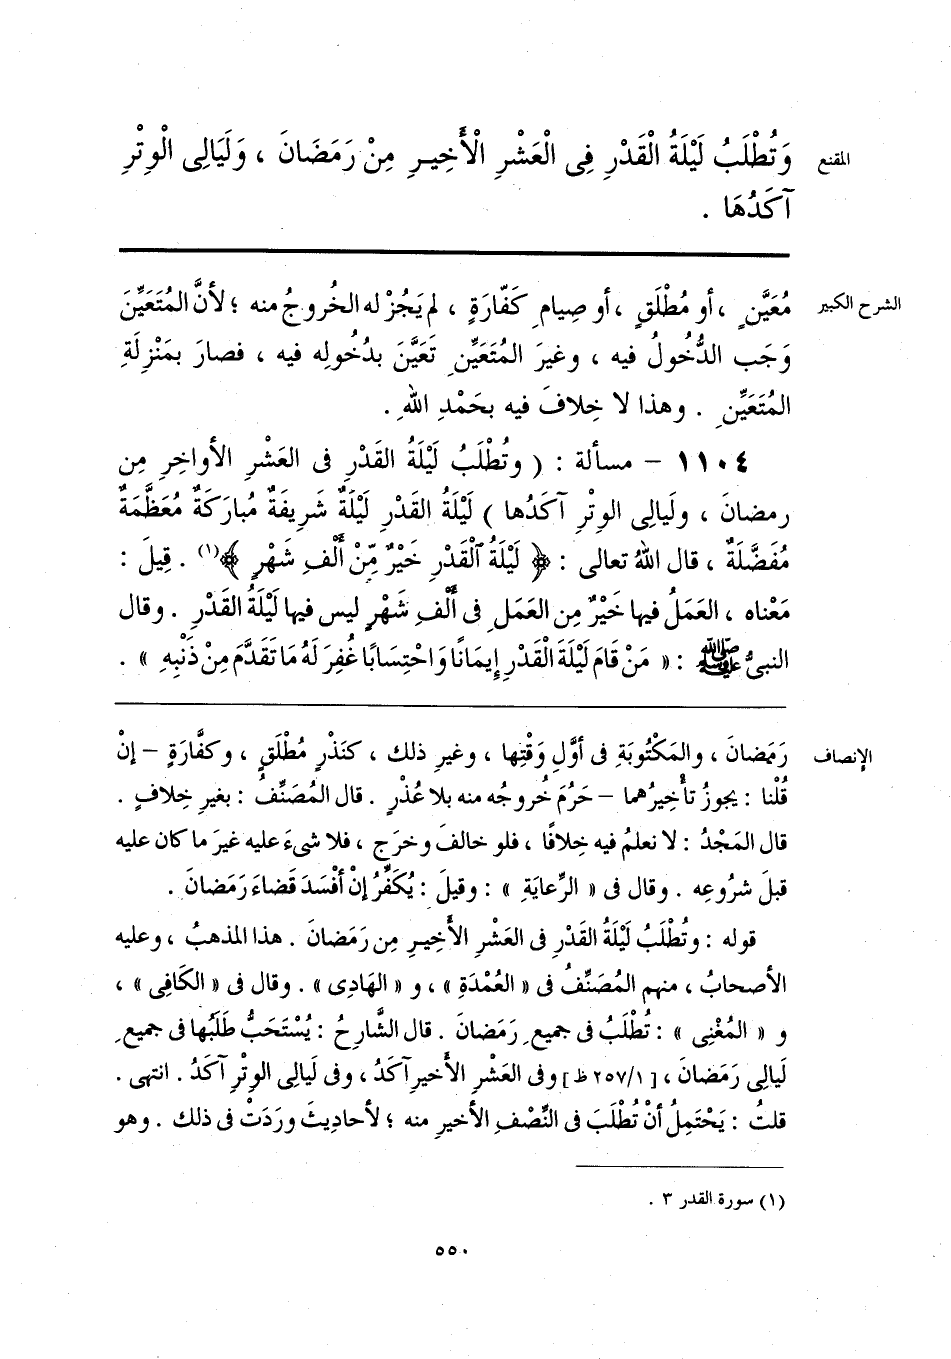 المقنع
وَتُطْلَبُ لَيْلَةُ الْقَدْرِ فِى الْعَشْرِ الْأَخِيرِ مِنْ رَمَضَانَ ، وَلَيَالِى الْوِتْرِ
آكَدُهَا .
الشرح الكبير
مُعَيَّنٍ ، أو مُطْلَقٍ ، أو صِيامِ كَفّارَةٍ ، لم يَجُزْ له الخُروجُ منه ؛ لأنَّ المُتَعَيِّنَ
وَجَب الدُّخُولُ فيه ، وغيرَ المُتَعَيِّنِ تَعَيَّنَ بدُخُولِه فيه ، فصارَ بمَنْزِلَةِ
المُتَعَيِّنِ . وهذا لا خِلافَ فيه بحَمْدِ اللهِ .
١١٠٤ – مسألة : ( وتُطْلَبُ لَيْلَةُ القَدْرِ فى العَشْرِ الأواخِرِ مِن
رمضانَ ، ولَيالِى الوِتْرِ آكَدُها ) لَيْلَةُ القَدْرِ لَيْلَةٌ شَرِيفَةٌ مُبارَكَةٌ مُعَظَّمَةٌ
مُفَضَّلَةٌ ، قال اللهُ تعالى : ﴿ لَيْلَةُ ٱلْقَدْرِ خَيْرٌ مِّنْ أَلْفِ شَهْرٍ ﴾(١) . قِيلَ :
مَعْناه ، العَمَلُ فيها خَيْرٌ مِن العَمَلِ فى أَلْفِ شَهْرٍ ليس فيها لَيْلَةُ القَدْرِ . وقال
النبىُّ ﷺ : « مَنْ قَامَ لَيْلَةَ الْقَدْرِ إِيمَانًا وَاحْتِسَابًا غُفِرَ لَهُ مَا تَقَدَّمَ مِنْ ذَنْبِهِ » .
الإنصاف
رَمَضانَ ، والمَكْتُوبَةِ فى أوَّلِ وَقْتِها ، وغيرِ ذلك ، كنَذْرٍ مُطْلَقٍ ، وكفَّارَةٍ – إنْ
قُلْنا : يجوزُ تأْخِيرُهما – حَرُمَ خُروجُه منه بلا عُذْرٍ . قال المُصَنِّفُ : بغيرِ خِلافٍ .
قال المَجْدُ : لا نعلمُ فيه خِلافًا ، فلو خالفَ وخرَج ، فلا شىءَ عليه غيرَ ما كان عليه
قبلَ شُروعِه . وقال فى « الرِّعايَةِ » : وقيلَ : يُكَفِّرُ إنْ أفْسَدَ قَضاءَ رَمَضانَ .
قوله : وتُطْلَبُ لَيْلَةُ القَدْرِ فى العَشْرِ الأَخِيرِ مِن رَمَضانَ . هذا المذهبُ ، وعليه
الأصحابُ ، منهم المُصَنِّفُ فى « العُمْدَةِ » ، و « الهَادِى » . وقال فى « الكَافِى » ،
و « المُغْنِى » : تُطْلَبُ فى جميعِ رَمَضانَ . قال الشَّارِحُ : يُسْتَحَبُّ طَلَبُها فى جميعِ
لَيالِى رَمَضانَ ، [ ٢٥٧/١ ظ ] وفى العَشْرِ الأخيرِ آكَدُ ، وفى لَيالِى الوِتْرِ آكَدُ . انتهى .
قلتُ : يَحْتَمِلُ أنْ تُطْلَبَ فى النِّصْفِ الأخيرِ منه ؛ لأحاديثَ وردَتْ فى ذلك . وهو
(١) سورة القدر ٣ .
٥٥٠